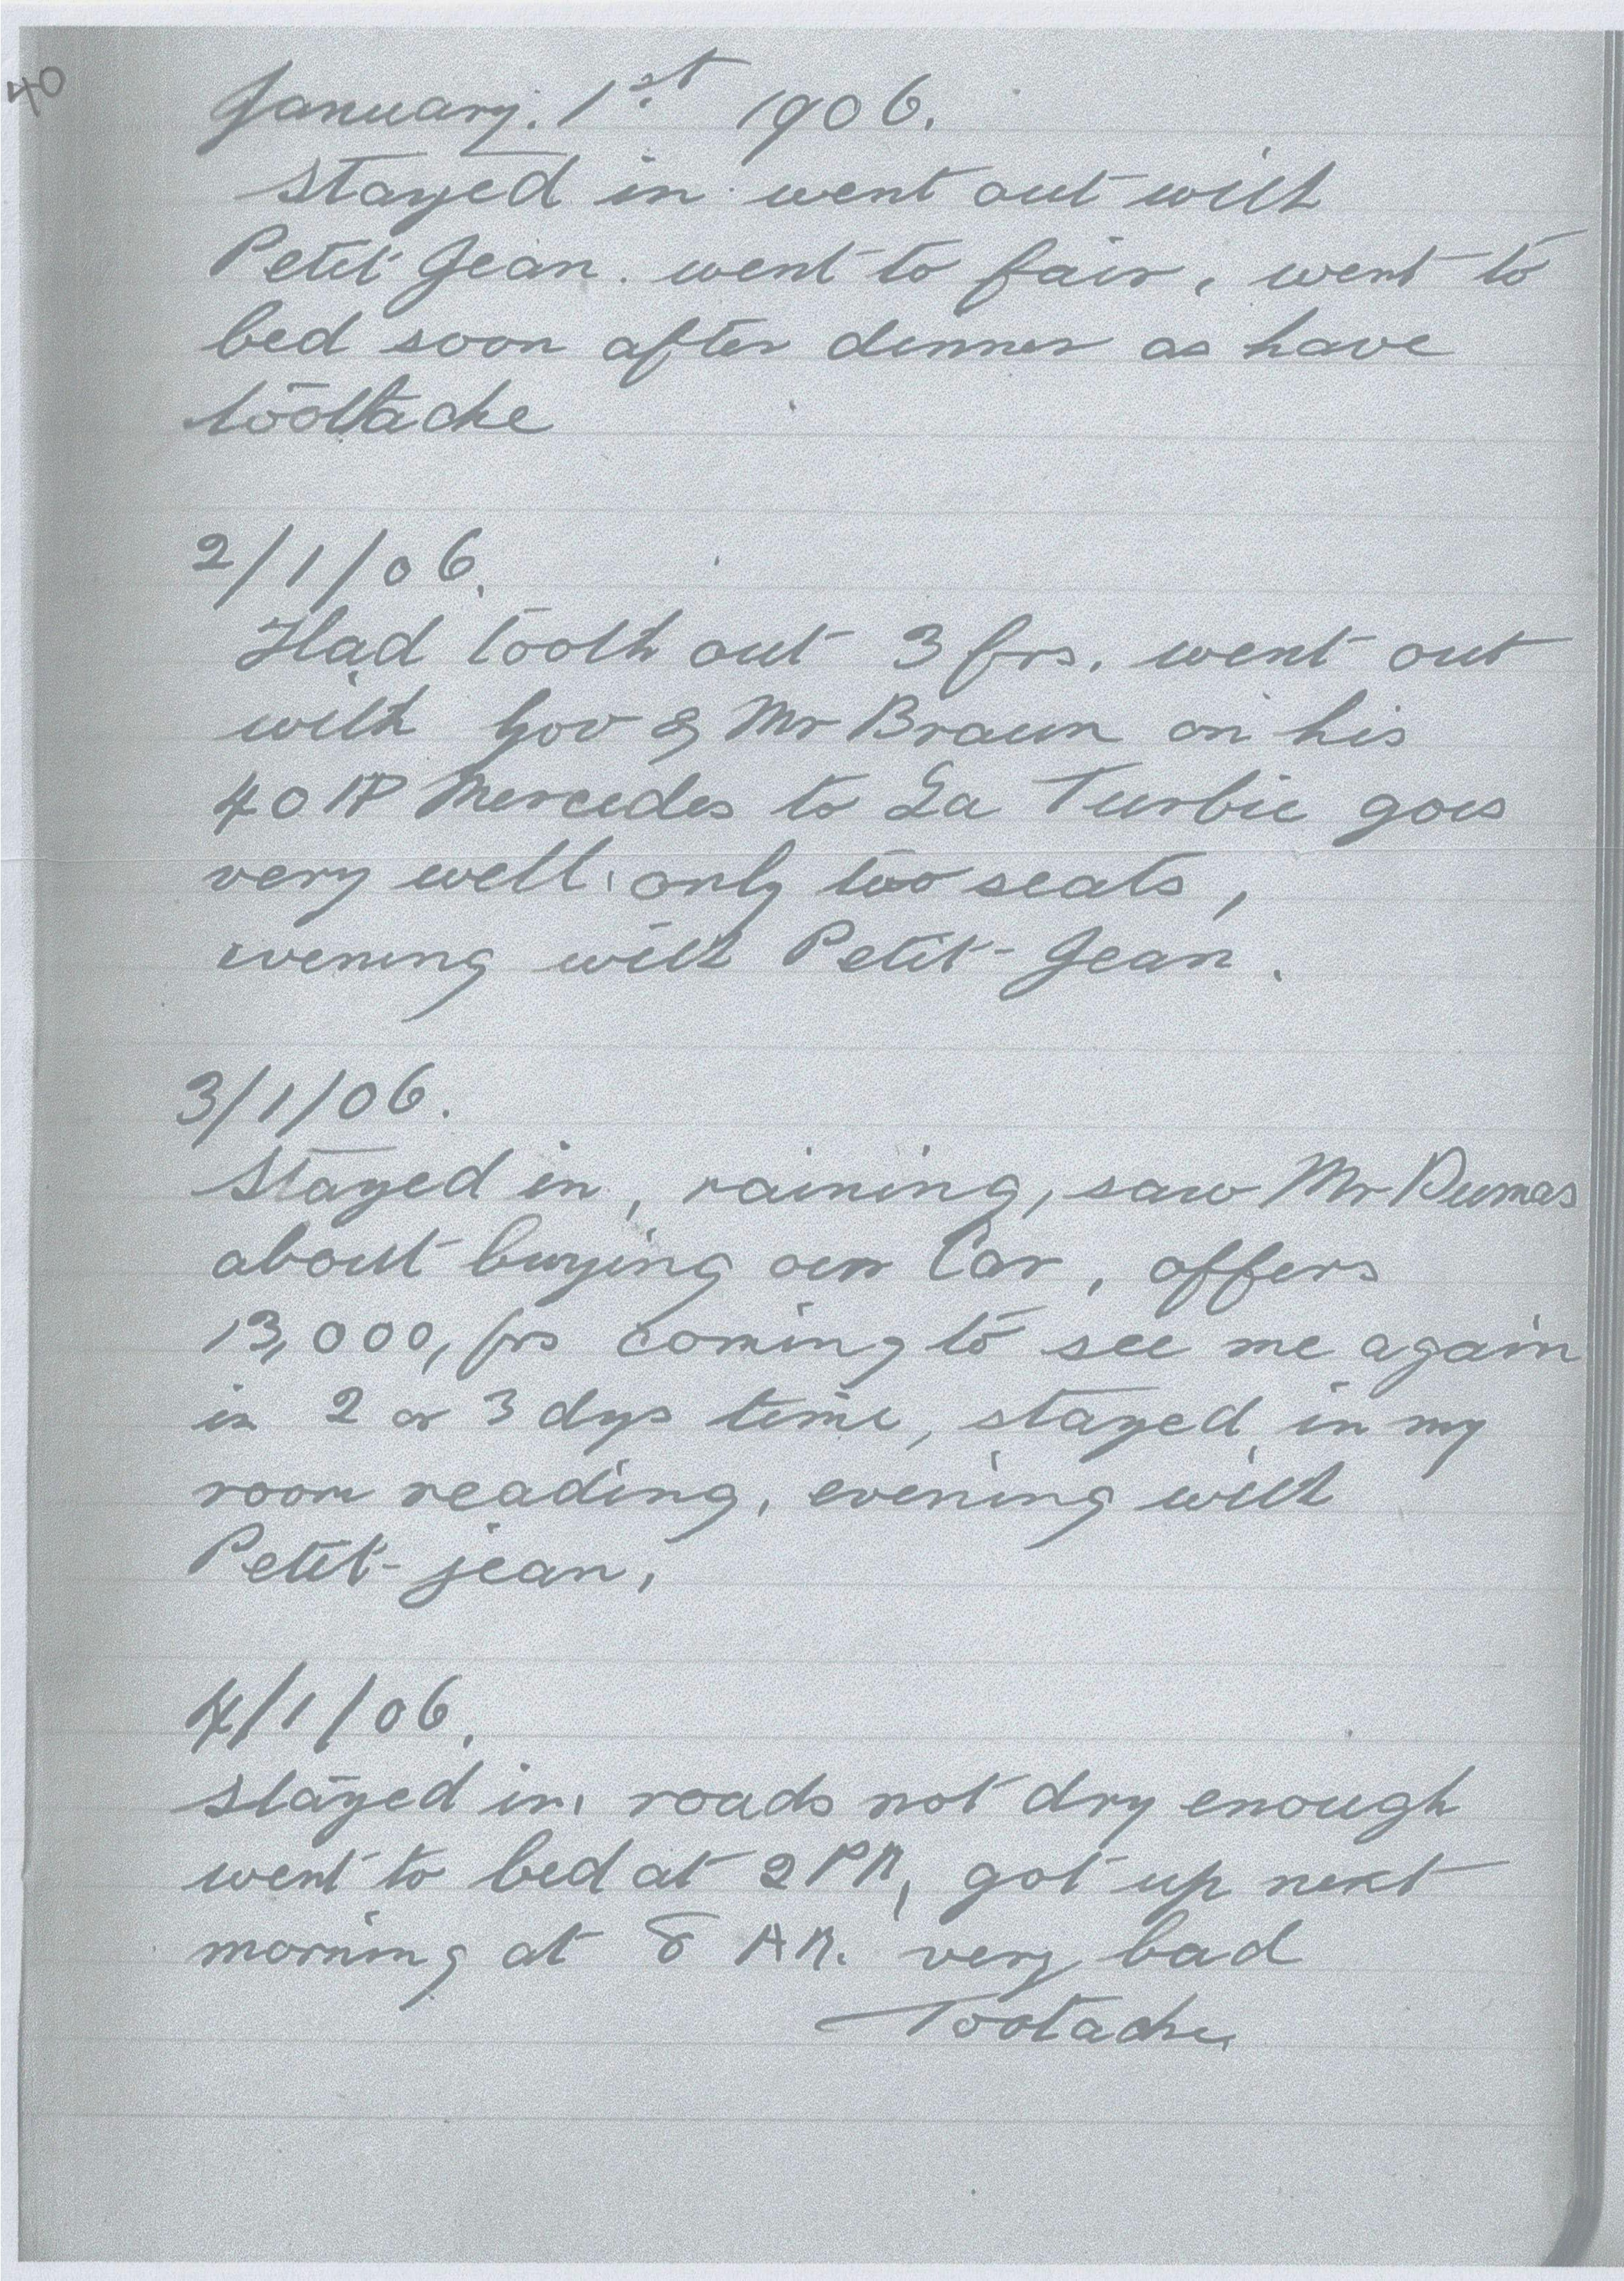 40
January. 1st 1906.
Stayed in. went out with
Petit Jean. went to fair, went to
bed soon after dinner as have
toothache
2/1/06.
Had tooth out 3 frs. went out
with Gov & Mr Braun on his
40 HP Mercedes to La Turbie goes
very well, only two seats,
evening with Petit-Jean.
3/1/06.
Stayed in, raining, saw Mr Dumas
about buying our Car, offers
13,000, frs coming to see me again
in 2 or 3 dys time, stayed in my
room reading, evening with
Petit-jean,
4/1/06.
stayed in, roads not dry enough
went to bed at 2 PM, got up next
morning at 8 AM. very bad
Tootache,